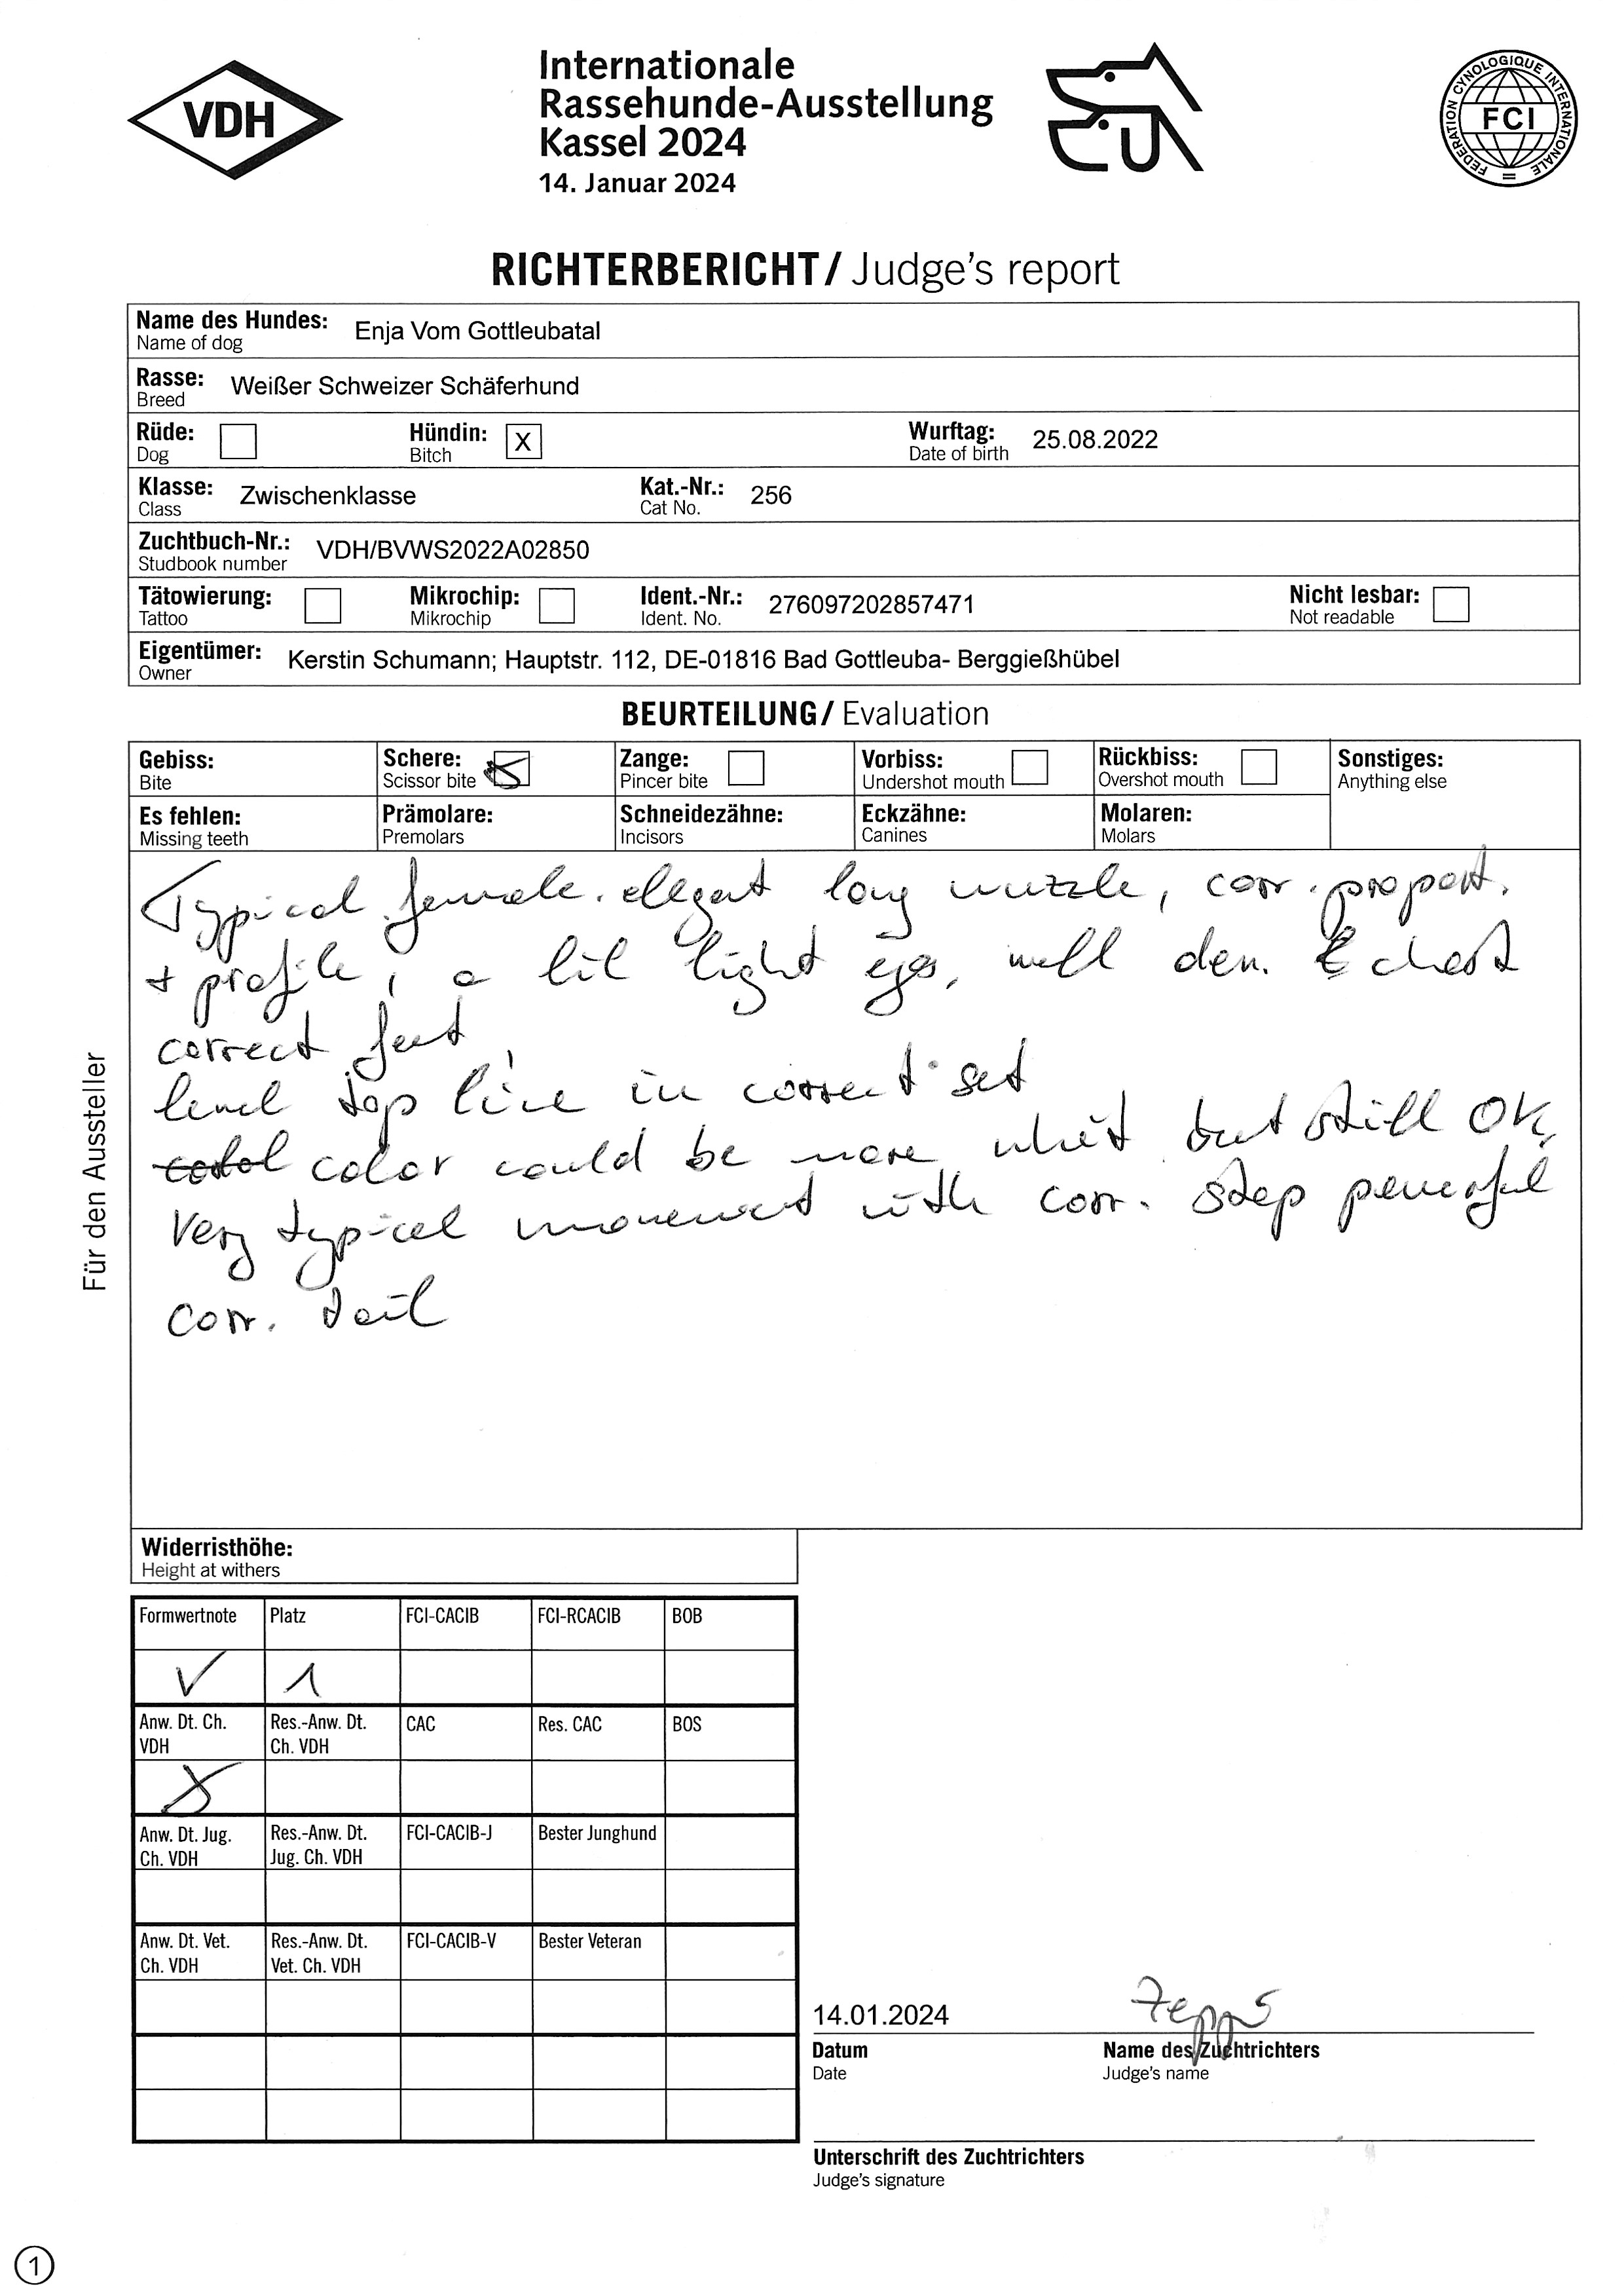 VDH
Internationale
Rassehunde-Ausstellung
Kassel 2024
14. Januar 2024
FEDERATION CYNOLOGIQUE INTERNATIONALE
FCI
RICHTERBERICHT / Judge's report
Name des Hundes: Enja Vom Gottleubatal
Name of dog
Rasse: Weißer Schweizer Schäferhund
Breed
Rüde: Hündin: X Wurftag: 25.08.2022
Dog Bitch Date of birth
Klasse: Zwischenklasse Kat.-Nr.: 256
Class Cat No.
Zuchtbuch-Nr.: VDH/BVWS2022A02850
Studbook number
Tätowierung: Mikrochip: Ident.-Nr.: 276097202857471 Nicht lesbar:
Tattoo Mikrochip Ident. No. Not readable
Eigentümer: Kerstin Schumann; Hauptstr. 112, DE-01816 Bad Gottleuba- Berggießhübel
Owner
BEURTEILUNG / Evaluation
Gebiss: Schere: Zange: Vorbiss: Rückbiss: Sonstiges:
Bite Scissor bite Pincer bite Undershot mouth Overshot mouth Anything else
Es fehlen: Prämolare: Schneidezähne: Eckzähne: Molaren:
Missing teeth Premolars Incisors Canines Molars
Typical female. elegant long muzzle, corr. proport.
+ profile, a lit light eyes, well den. chest
correct feet,
level top line in correct set
color could be more whit but still OK,
Very typical movement with corr. step powerful
corr. tail
Für den Aussteller
Widerristhöhe:
Height at withers
Formwertnote Platz FCI-CACIB FCI-RCACIB BOB
V 1
Anw. Dt. Ch. Res.-Anw. Dt. CAC Res. CAC BOS
VDH Ch. VDH
X
Anw. Dt. Jug. Res.-Anw. Dt. FCI-CACIB-J Bester Junghund
Ch. VDH Jug. Ch. VDH
Anw. Dt. Vet. Res.-Anw. Dt. FCI-CACIB-V Bester Veteran
Ch. VDH Vet. Ch. VDH
14.01.2024
Datum Name des Zuchtrichters
Date Judge's name
Unterschrift des Zuchtrichters
Judge's signature
1